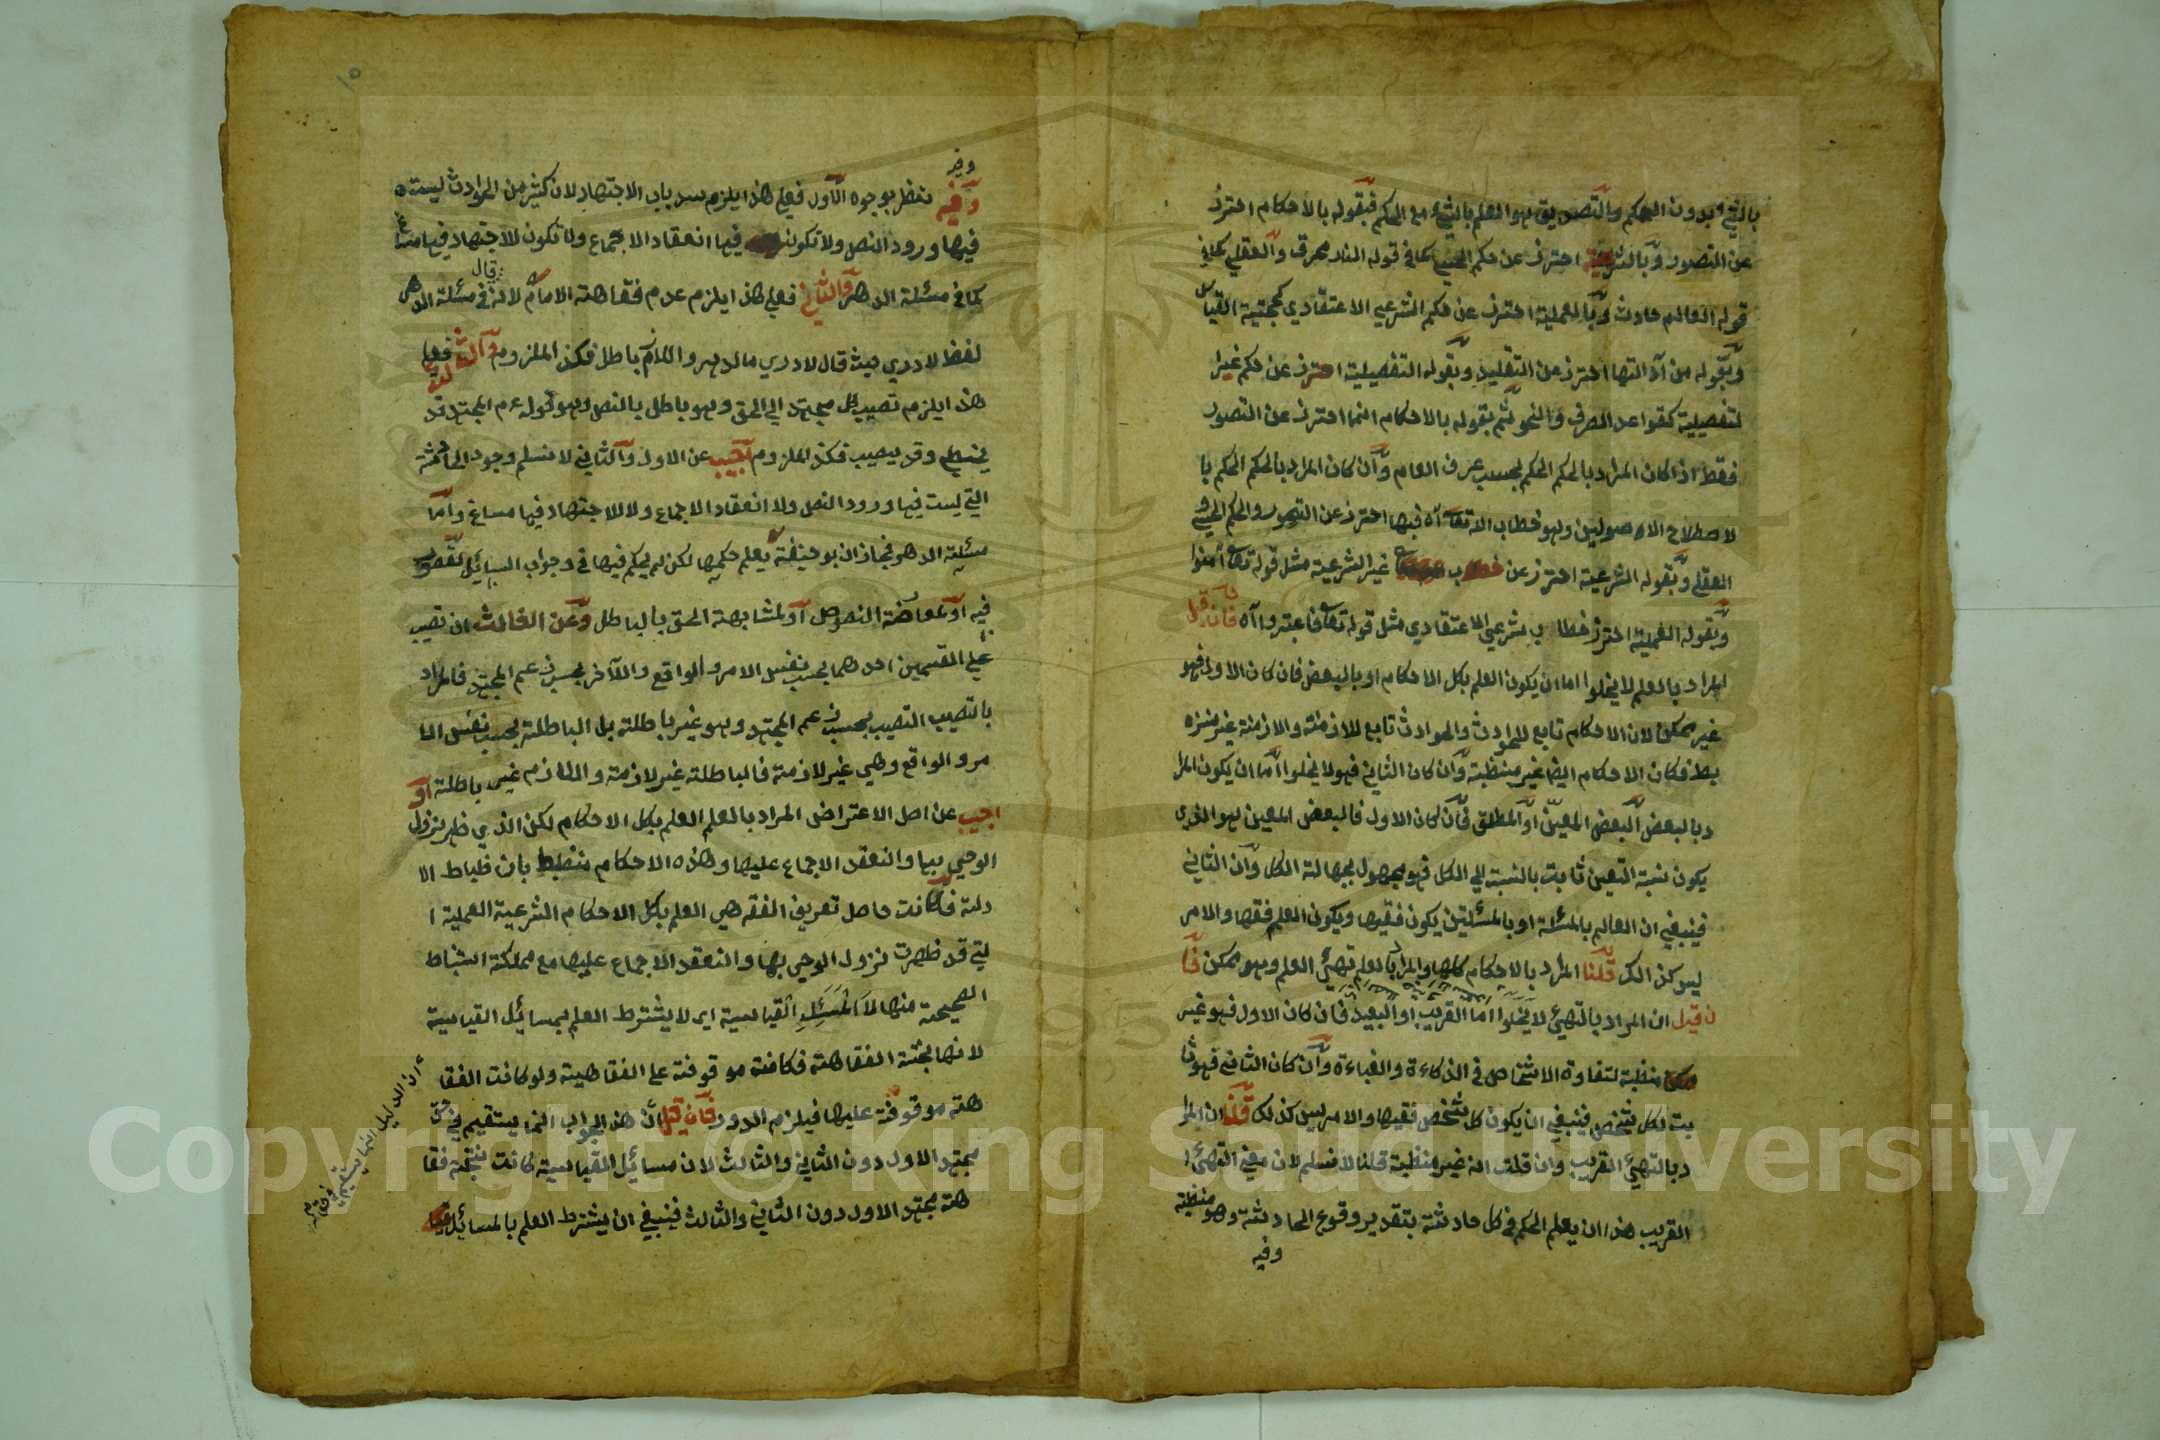 بالشيء بدون الحكم والتصديق هو العلم بالشيء مع الحكم فبقوله بالاحكام احترز
عن التصور وبالشرعية احترز عن حكم الحسي كما في قوله النار محرق والعقلي كما في
قوله العالم حادث وبالعملية احترز عن حكم الشرعي الاعتقادي كحجتية القياس
وبقوله من آدلتها احترز عن التقليد وبقوله التفصيلية احترز عن حكم غير ا
لتفصيلية كقواعد الصرف والنحو ثم بقوله بالاحكام انما احترز عن التصور
فقط اذا كان المراد بالحكم الحكم بحسب عرف العام وان كان المراد بالحكم الحكم با
لاصطلاح الاصوليين وهو خطاب الله تعا آه فبها احترز عن التصور والحكم الحسي و
العقلي وبقوله الشرعية احترز عن خطاب غير الشرعية مثل قوله تعا آمنوا
وبقوله العملية احترز خطاب شرعي الاعتقادي مثل قوله تعا فاعتبروا آه فانه قيل
المراد بالعلم لا يخلوا اما ان يكون العلم بكل الاحكام او بالبعض فان كان الاول فهو
غير ممكن لان الاحكام تابع للحوادث والحوادث تابع للازمنة والازمنة غير منـ
ـبط فكان الاحكام ايضا غير منضبطة وان كان الثاني فهو لا يخلوا اما ان يكون المرا
د بالبعض البعض المعين او المطلق فان كان الاول فالبعض المعين هو الذي
يكون نسبة التعين ثابت بالنسبة الى الكل فهو مجهول بجهالة الكل وان الثاني
فينبغي ان العالم بالمسئلة او بالمسئلتين يكون فقيها ويكون العلم فقها والامر
ليس كذالك قلنا المراد بالاحكام كلها والمراد بالعلم تهيئ العلم وهو ممكن فا
ن قيل ان المراد بالتهيئ لا يخلوا اما القريب او البعيد فان كان الاول فهو غير
منضبطة لتفاوة الاشخاص في الذكاءة والغباءة وان كان الثاني فهو ثا
بت لكل شخص فينبغي ان يكون كل شخص فقيها والامر ليس كذلك قلنا ان المرا
د بالتهيئ القريب وان قلت انه غير منضبطة قلنا لا نسلم لان معني التهيئ ا
القريب هذا ان يعلم الحكم في كل حادثة بتقدير وقوع الحادثة وهو منضبطة
وفيه
وفيه
وفيه نظر بوجوه الاول فعلي هذا يلزم سد باب الاجتهاد لان كثير من الحوادث ليست
فيها ورود النص ولا تكون فيها انعقاد الاجماع ولا تكون للاجتهاد فيها مساغ
كما في مسئلة الدهر والثاني فعلي هذا يلزم عدم فقاهة الامام لانه قال في مسئلة الدهر
لفظ لا ادري حيث قال لا ادري ما الدهر واللازم باطل فكذ الملزوم والثالث فعلي
هذا يلزم تصيب كل مجتهد الي الحق وهو باطل بالنص وهو قوله عم المجتهد قد
يخطي وقد يصيب فكذ الملزوم اجيب عن الاول والثاني لا نسلم وجود الحادثة
التي ليست فيها ورود النص ولا انعقاد الاجماع ولا للاجتهاد فيها مساغ واما
مسئلة الدهر فجاز ان ابو حنيفة يعلم حكمها لكن لم يحكم فيها في وجواب السائل لقصور
فيه او لمعارضة النصوص او لمشابهة الحق بالباطل وعن الثالث ان تصيب
علي القسمين احدهما بحسب نفس الامر والواقع والآخر بحسب زعم المجتهد فالمراد
بالتصيب التصيب بحسب زعم المجتهد وهو غير باطلة بل الباطلة بحسب نفس الا
مر والواقع وهي غير لازمة فالباطلة غير لازمة واللازم غير باطلة او
اجيب عن اصل الاعتراض المراد بالعلم العلم بكل الاحكام لكن الذي ظهر نزول
الوحي بها والنعقد الاجماع عليها وهذه الاحكام منضبط بان ضباط الا
دلة فكانت حاصل تعريف الفقه هي العلم بكل الاحكام الشرعية العملية ا
لتي قد ظهرت نزول الوحي بها والنعقد الاجماع عليها مع مملكة استنباط
الصحيحة منها لا المسئل القياسية اي لا يشترط العلم بمسائل القياسية
لانها نتيجة الفقاهة فكانت موقوفة علي الفقاهية ولو كانت الفقا
هة موقوفة عليها فيلزم الدور فان قيل ان هذ الجواب انما يستقيم في حق
مجتهد الاول دون الثاني والثالث لان مسائل القياسية كانت نتيجة فقا
هة مجتهد الاول دون الثاني والثالث فينبغي ان يشترط العلم بالمسائل
ان الدليل انما يستقيم
Copyright © King Saud University